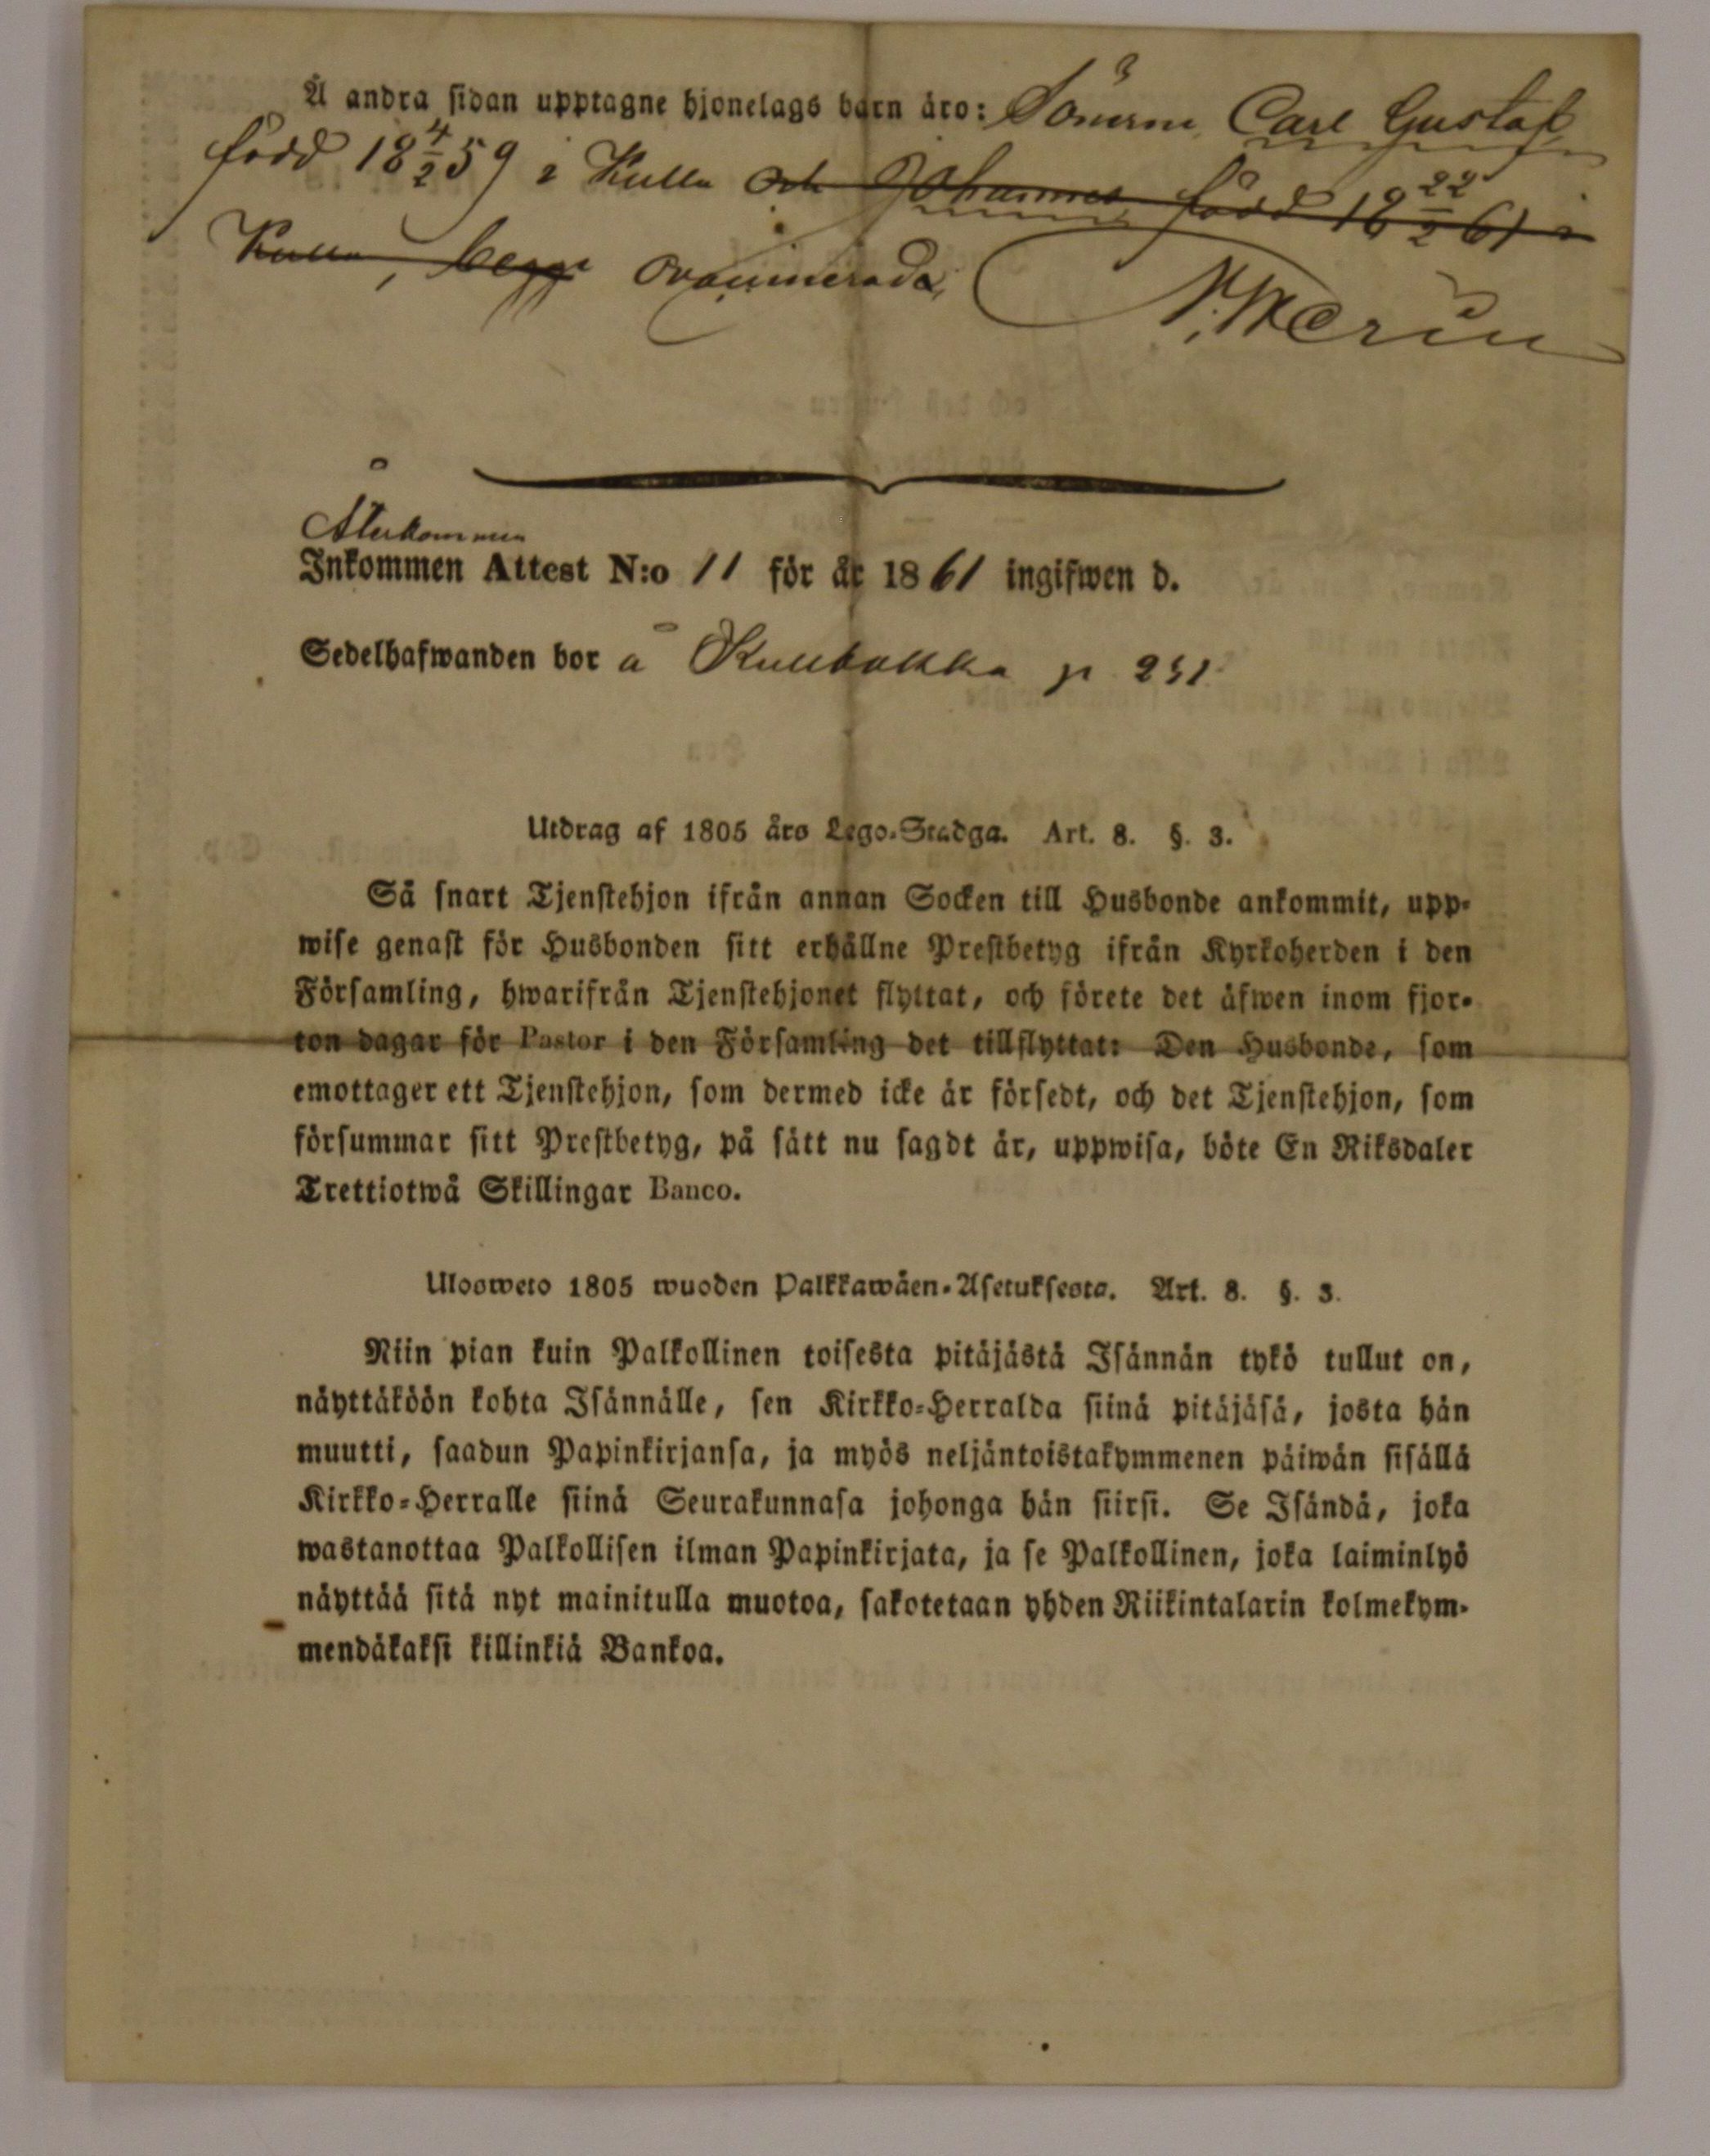 Å andra sidan upptagne hjonelags barn äro: Sönerne Carl Gustaf
född 18 4/2 59 i Kulla och Johannes född 18 22/2 61 i
Kulla, begge ovaccinerade,
Återkommen
Inkommen Attest N:o 11 för år 1861 ingifwen d.
Sedelhafwanden bor å Kullbakka p 231
Utdrag af 1805 års Lego-Stadga. Art. 8. §. 3.
Så snart Tjenstehjon ifrån annan Socken till Husbonde ankommit, upp-
wise genast för Husbonden sitt erhållne Prestbetyg ifrån Kyrkoherden i den
Församling, hwarifrån Tjenstehjonet flyttat, och förete det äfwen inom fjor-
ton dagar för Pastor i den Församling det tillflyttat: Den Husbonde, som
emottager ett Tjenstehjon, som dermed icke är försedt, och det Tjenstehjon, som
försummar sitt Prestbetyg, på sätt nu sagdt är, uppwisa, böte En Riksdaler
Trettiotwå Skillingar Banco.
Ulosweto 1805 wuoden Palkkawäen-Asetuksesta. Art. 8. §. 3.
Niin pian kuin Palkollinen toisesta pitäjästä Isännän tykö tullut on,
näyttäköön kohta Isännälle, sen Kirkko-Herralda siinä pitäjäsä, josta hän
muutti, saadun Papinkirjansa, ja myös neljäntoistakymmenen päiwän sisällä
Kirkko-Herralle siinä Seurakunnasa johonga hän siirsi. Se Isändä, joka
wastanottaa Palkollisen ilman Papinkirjata, ja se Palkollinen, joka laiminlyö
näyttää sitä nyt mainitulla muotoa, sakotetaan yhden Riikintalarin kolmekym-
mendäkaksi killinkiä Bankoa.